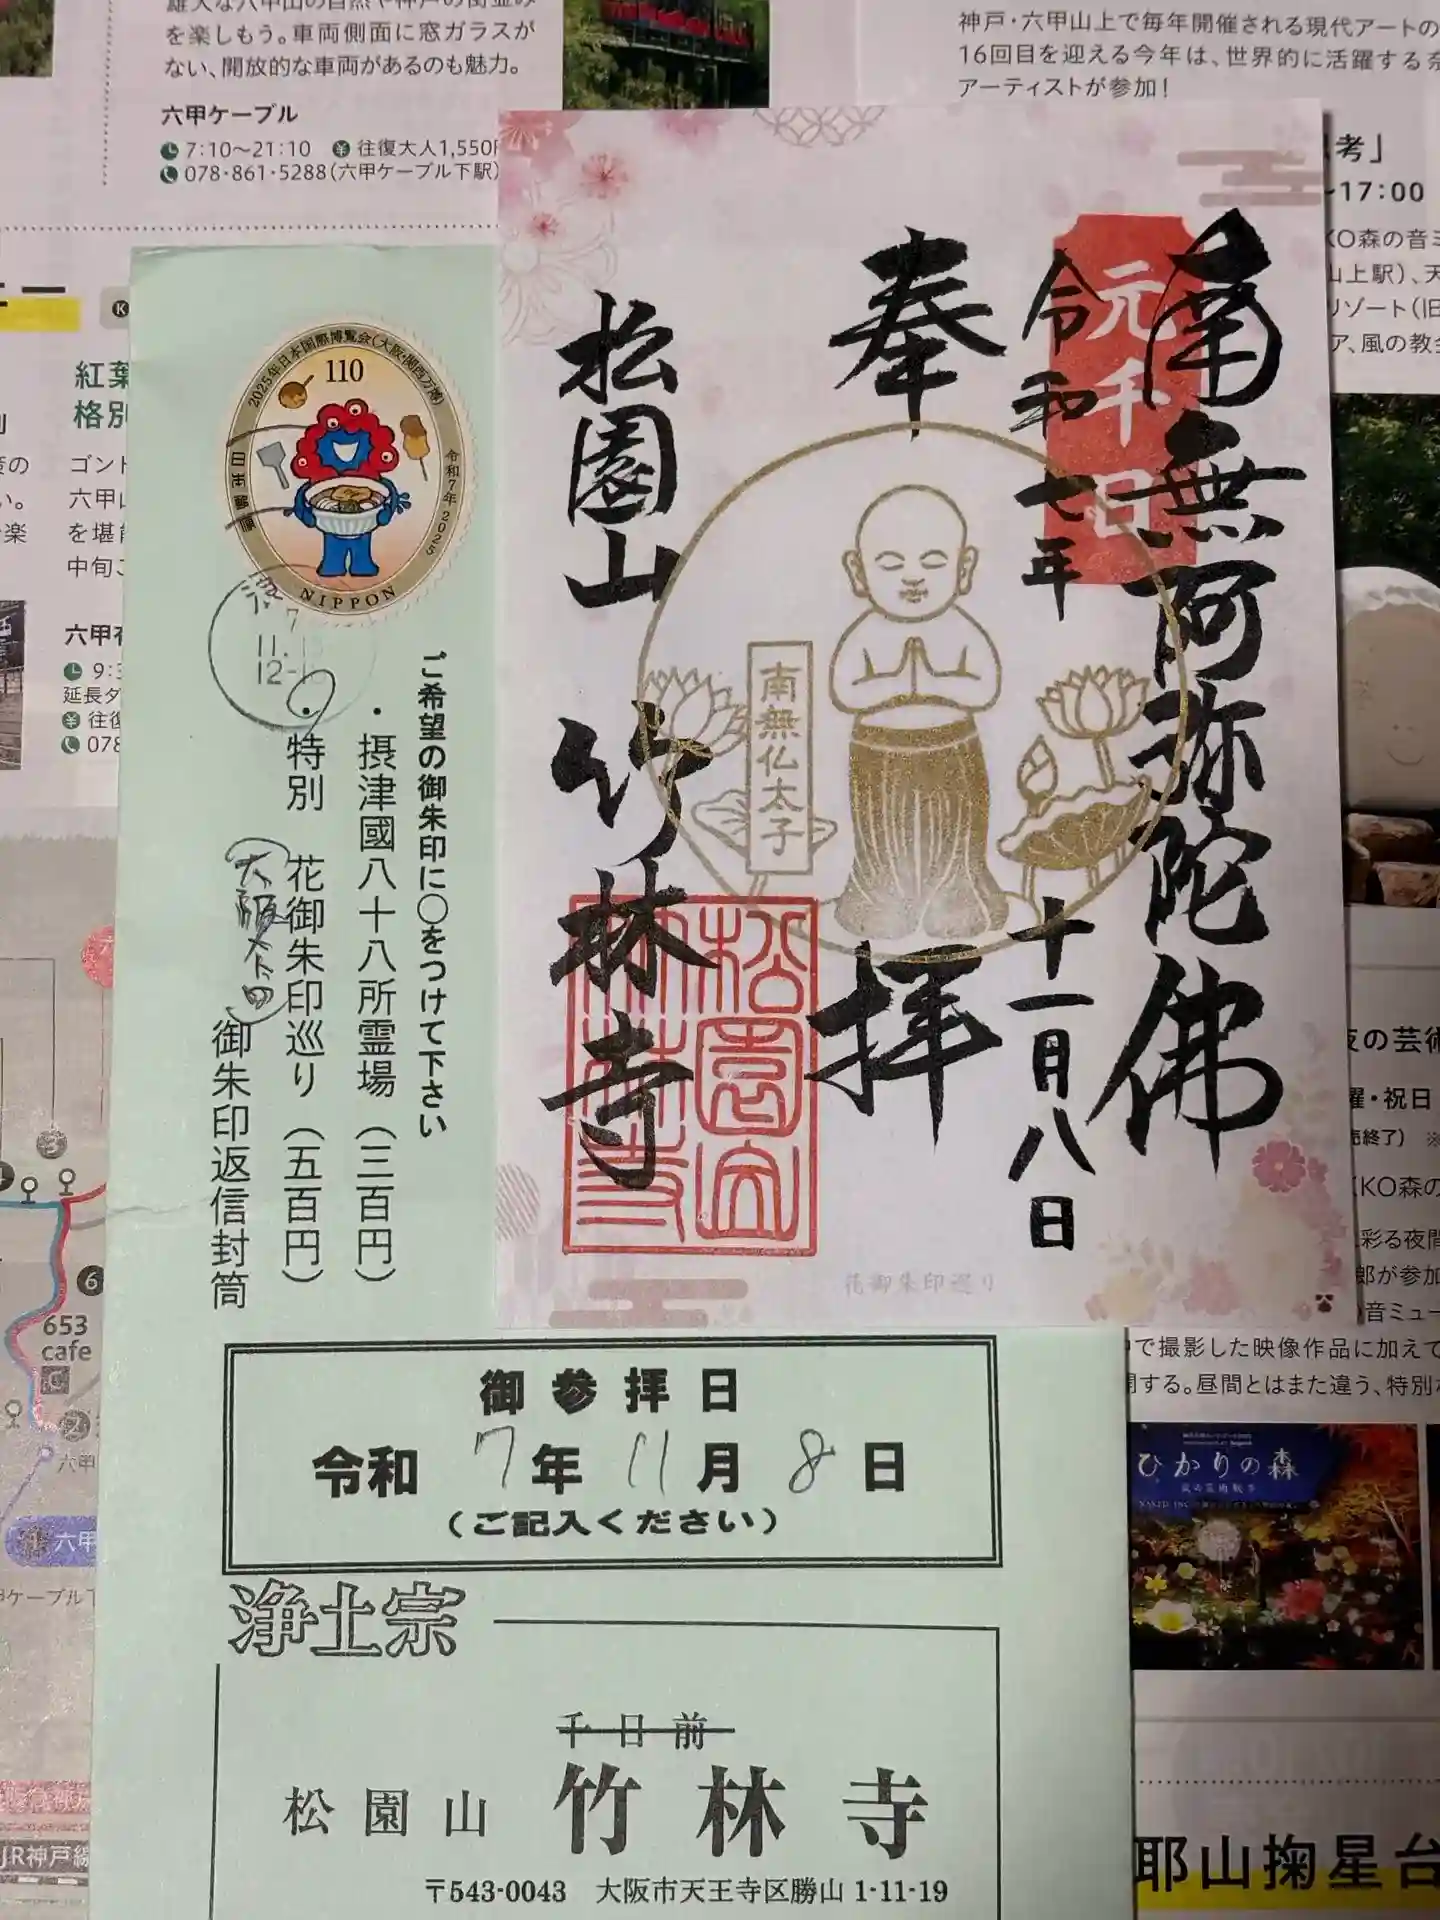 を楽しもう。車両側面に窓ガラスが
ない、開放的な車両があるのも魅力。
六甲ケーブル
7:10〜21:10 往復大人1,550円
078・861・5288(六甲ケーブル下駅)
神戸・六甲山上で毎年開催される現代アートの
16回目を迎える今年は、世界的に活躍する奈
アーティストが参加!
考」
17:00
KO森の音ミ
山上駅)、天
リゾート(旧
ア、風の教会
南無阿弥陀佛
元千日
令和七年
十一月八日
奉
拝
南無仏太子
松園山
竹林寺
花御朱印巡り
2025年日本国際博覧会(大阪・関西万博)
110
令和7年 2025
日本郵便
NIPPON
7
11.
12-
ご希望の御朱印に〇をつけて下さい
・摂津國八十八所霊場(三百円)
・特別 花御朱印巡り(五百円)
御朱印返信封筒
御参拝日
令和 7年 11月 8日
(ご記入ください)
浄土宗
千日前
松園山 竹林寺
〒543-0043 大阪市天王寺区勝山 1-11-19
紅葉
格別
ゴンド
六甲山
を堪能
六甲有
延長ダ
往復
078
6
653
cafe
JR神戸線
夜の芸術
曜・祝日
売終了) ※
KO森の
彩る夜間
郎が参加
音ミュー
中で撮影した映像作品に加えて
開する。昼間とはまた違う、特別な
ひかりの森
耶山掬星台